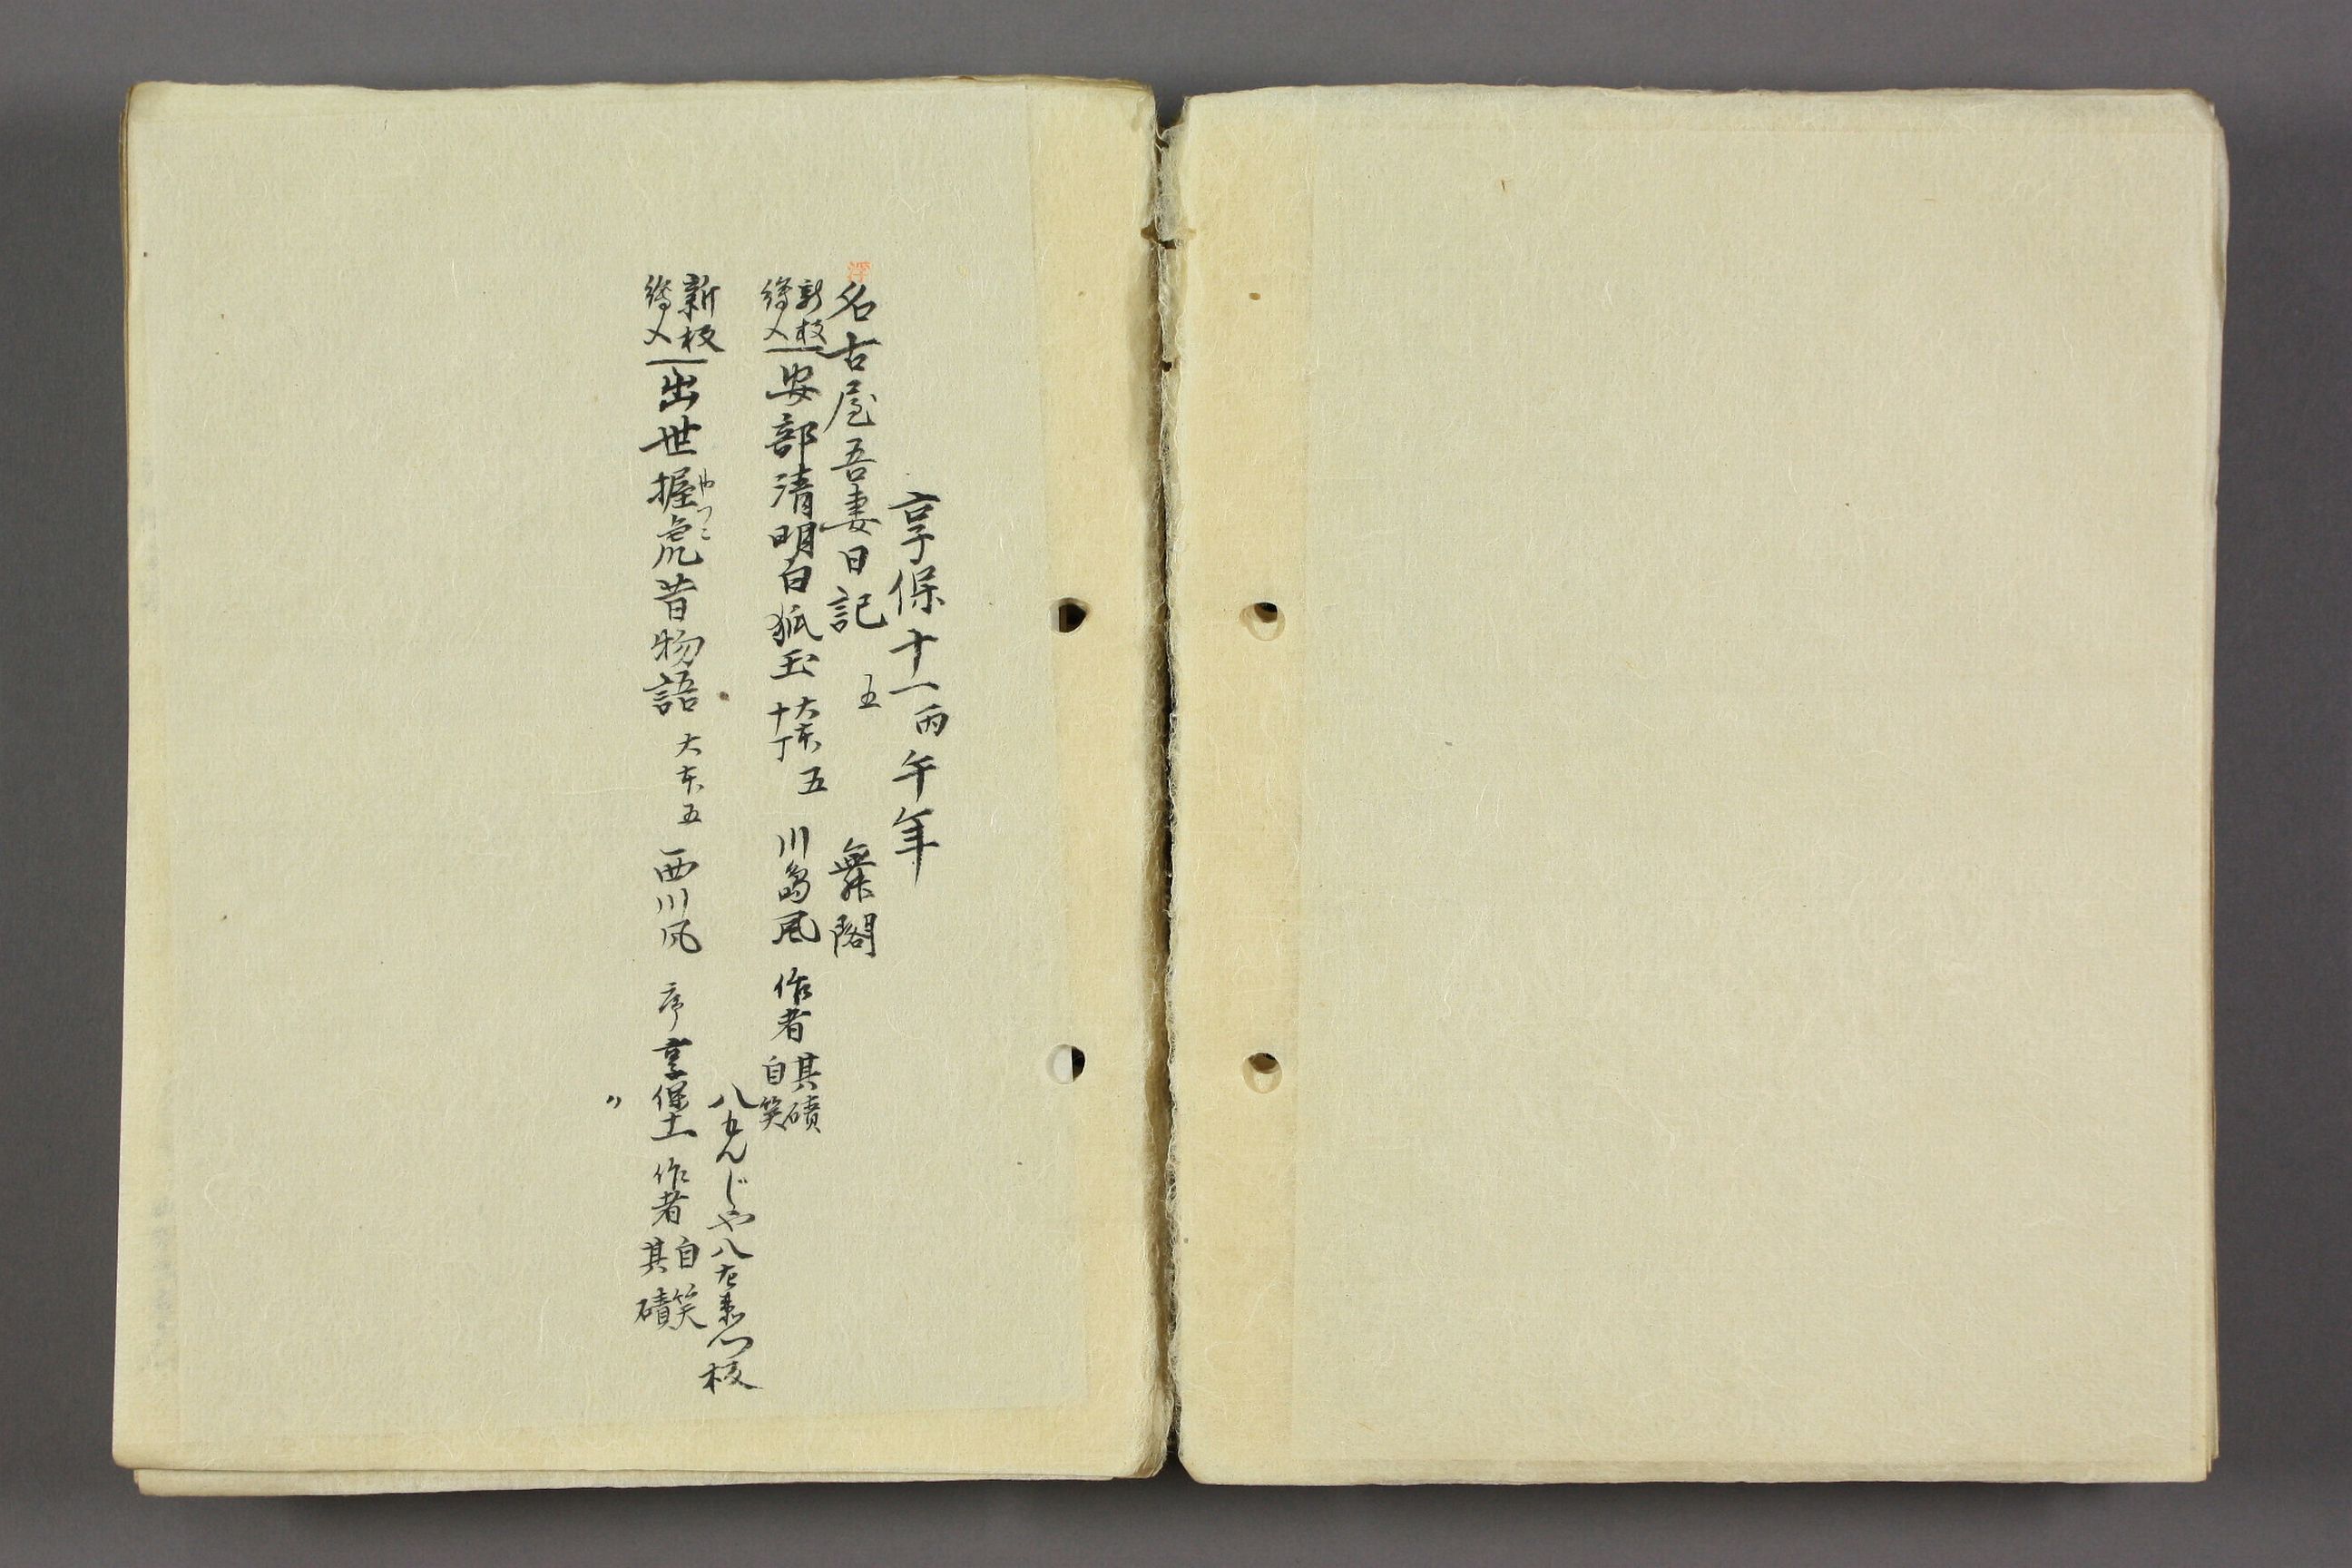 享保十一丙午年
浮
名古屋吾妻日記 五 舞閣
新板
繪入
安部清明白狐玉 大本 十丁 五 川島風 作者 其磧 自笑
八もんじや八左衛門板
新板
繪入
出世握虎昔物語 大本五 西川風 序享保十一 作者 自笑 其磧
やつこ
〃